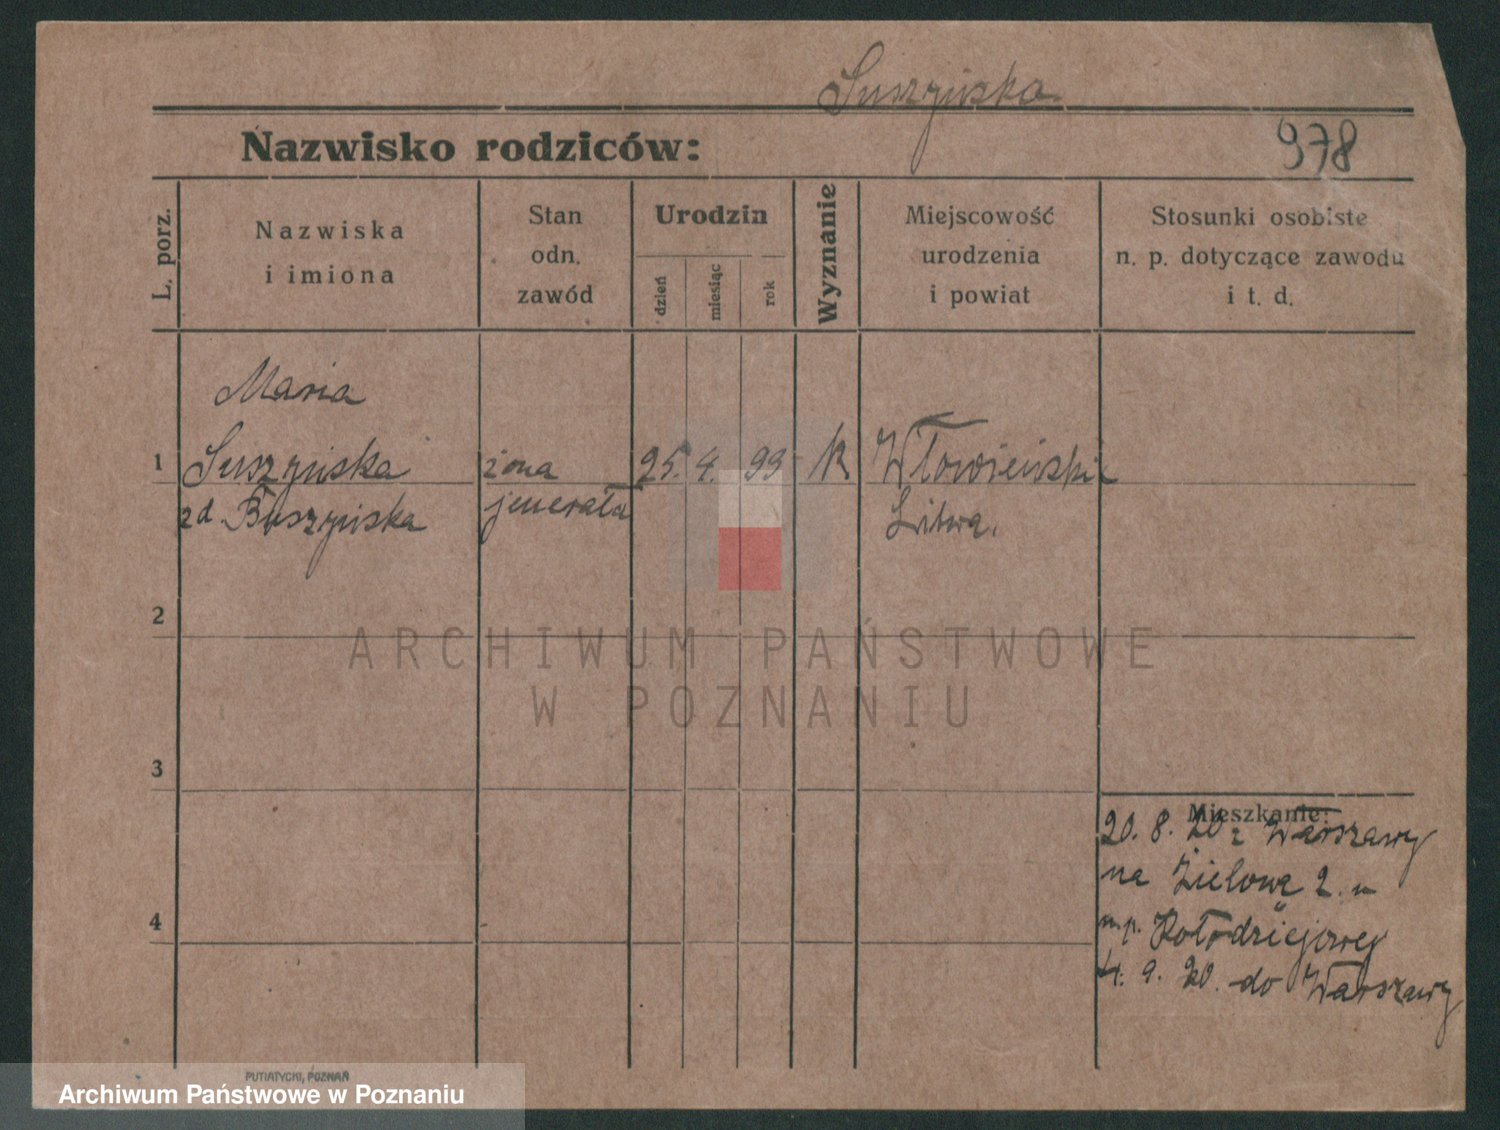 Suszyńska
Nazwisko rodziców:
978
L. porz.
Nazwiska
i imiona
Stan
odn.
zawód
Urodzin
dzień
miesiąc
rok
Wyznanie
Miejscowość
urodzenia
i powiat
Stosunki osobiste
n. p. dotyczące zawodu
i t. d.
Maria
1 Suszyńska żona 25. 4. 99 K
zd. Buszyńska jenerała Litwa.
2
ARCHIWUM PAŃSTWOWE
W POZNANIU
3
Mieszkanie:
20. 8. 20 z Warszawy
na Zielową 2. u
m. p. Kołodziejowej
4. 9. 20. do Warszawy
4
PUTIATYCKI, POZNAŃ
Archiwum Państwowe w Poznaniu